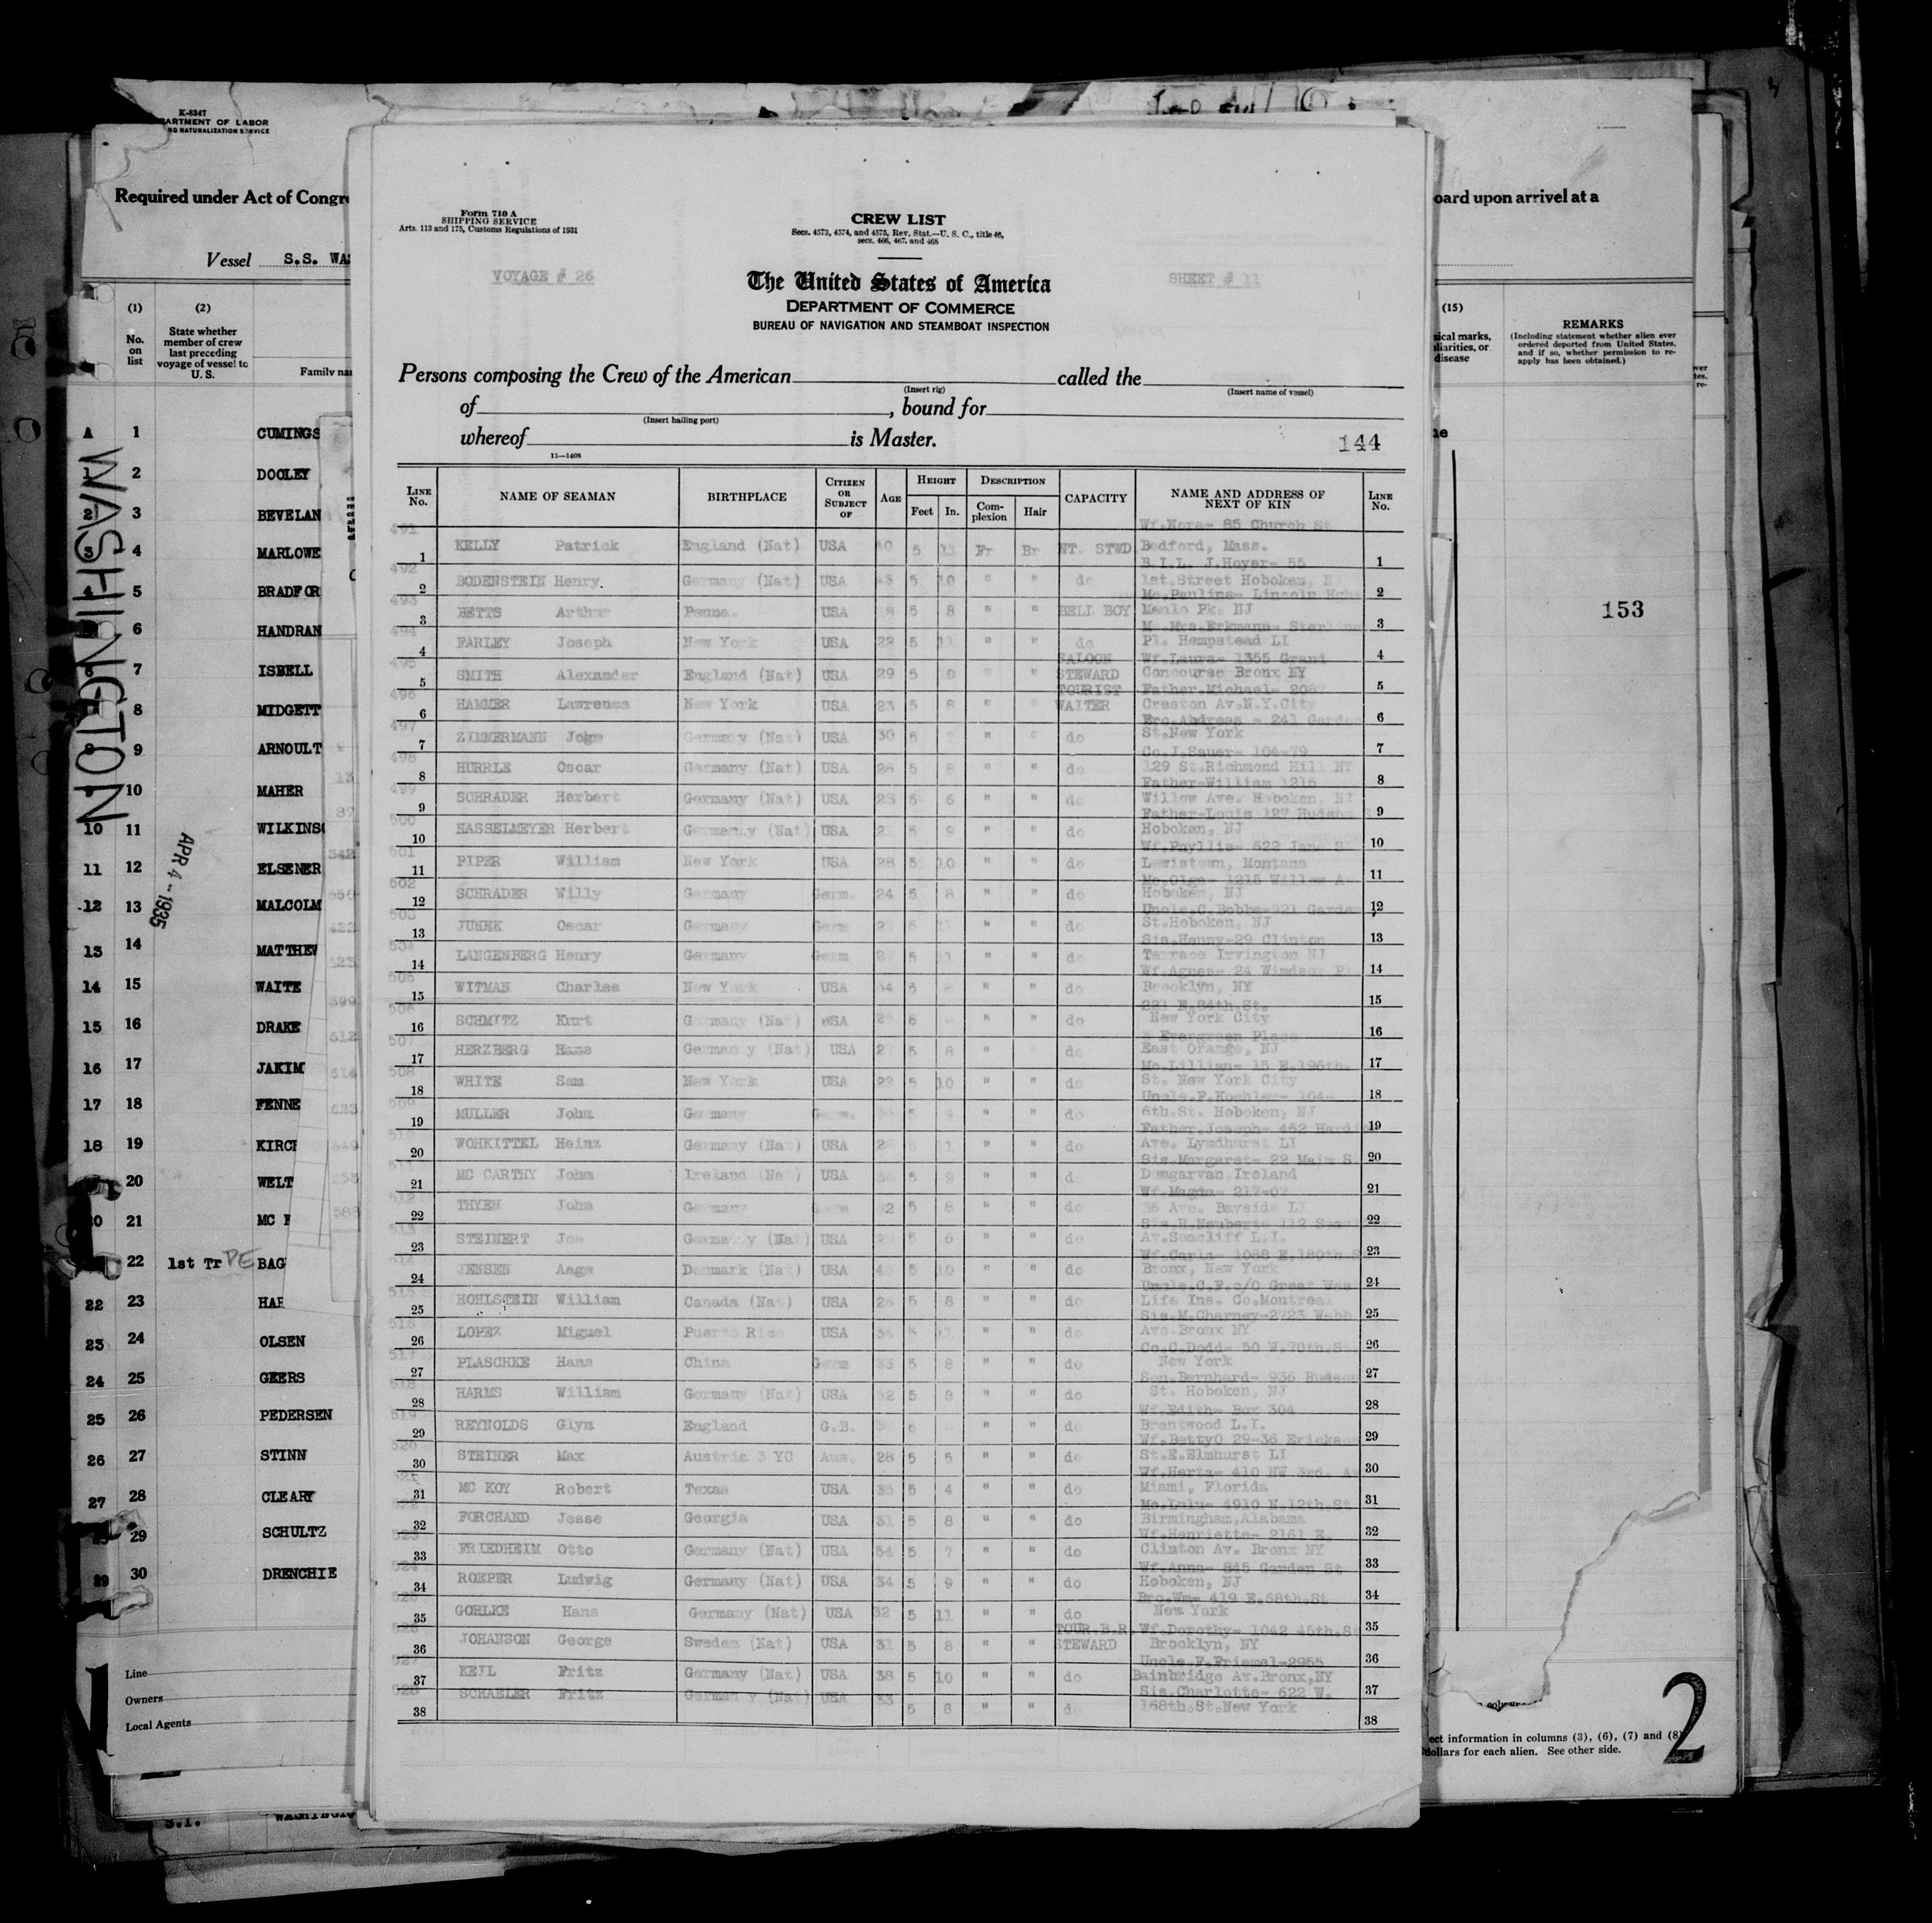 K-8347
ARTMENT OF LABOR
ND NATURALIZATION SERVICE
Required under Act of Congre
Vessel S.S. WAS
(1) (2)
No. on list
State whether member of crew last preceding voyage of vessel to U. S.
Family nam
A 1 CUMINGS
1 2 DOOLEY
2 3 BEVELAN
3 4 MARLOWE
4 5 BRADFOR
6 HANDRAN
6 7 ISBELL
8 MIDGETT
9 ARNOULT
10 MAHER
10 11 WILKINSO
11 12 ELSENER
12 13 MALCOLM
13 14 MATTHEW
14 15 WAITE
15 16 DRAKE
16 17 JAKIM
17 18 FENNE
18 19 KIRCH
20 WELT
20 21 MC
22 1st Tr PE BAG
22 23 HAR
23 24 OLSEN
24 25 GEERS
25 26 PEDERSEN
26 27 STINN
27 28 CLEARY
29 SCHULTZ
29 30 DRENCHIE
WASHINGTON
APR 4-1935
Line
Owners
Local Agents
Form 710 A
SHIPPING SERVICE
Arts. 113 and 175, Customs Regulations of 1931
CREW LIST
Secs. 4573, 4574, and 4575, Rev. Stat.—U. S. C., title 46,
secs. 466, 467, and 468
VOYAGE # 26
SHEET # 11
The United States of America
DEPARTMENT OF COMMERCE
BUREAU OF NAVIGATION AND STEAMBOAT INSPECTION
Persons composing the Crew of the American called the
(Insert rig) (Insert name of vessel)
of , bound for
(Insert hailing port)
whereof is Master.
11—1408
144
LINE No. NAME OF SEAMAN BIRTHPLACE CITIZEN OR SUBJECT OF AGE HEIGHT Feet In. DESCRIPTION Complexion Hair CAPACITY NAME AND ADDRESS OF NEXT OF KIN LINE No.
491 Wf.Nora- 85 Church St
1 KELLY Patrick England (Nat) USA 40 5 11 Fr Br NT. STWD Bedford, Mass. 1
492 B.I.L. J.Hoyer- 55
2 BODENSTEIN Henry. Germany (Nat) USA 5 10 " " do 1st.Street Hoboken, NJ 2
493 Mo.Pauline- Lincoln
3 BETTS Arthur Penna. USA 5 8 " " BELL BOY Menlo Pk. NJ 3
494 Mrs.Erkmann- Sterling
4 FARLEY Joseph New York USA 22 5 11 " " do Pl. Hempstead LI 4
495 SALOON Wf.Laura- 1355 Grand
5 SMITH Alexander England (Nat) USA 29 5 " STEWARD Concourse Bronx NY 5
496 TOURIST Father.Michael- 208
6 HAMMER Lawrence New York USA 23 5 8 " " WAITER Creston Av.N.Y.City 6
497 Bro.Andreas - 241 Garden
7 ZIMMERMANN John Germany (Nat) USA 30 5 " do St.New York 7
498 Co.I.Sauer- 104-79
8 HURRLE Oscar Germany (Nat) USA 5 8 " " do 129 St.Richmond Hill NY 8
499 Father-William 1215
9 SCHRADER Herbert Germany (Nat) USA 5 6 " " do Willow Ave. Hoboken, NJ 9
500 Father-Louis 127 Hudson
10 HASSELMEYER Herbert Germany (Nat) USA 5 9 " " do Hoboken, NJ 10
501 Wf.Phyllis- 622
11 PIPER William New York USA 28 5 10 " " do Lewistown, Montana 11
502 Mo.Olga- 1215 Willow A
12 SCHRADER Willy Germany Germ. 24 5 8 " " do Hoboken, NJ 12
503 Uncle.C.Bobbe-921 Garden
13 JUNEK Oscar Germany Germ 5 11 " " do St.Hoboken, NJ 13
504 Sis.Henny-29 Clinton
14 LANGENBERG Henry Germany Germ 5 11 " " do Terrace Irvington NJ 14
505 Wf.Agnes- 24 Windsor Pl
15 WITMAN Charles New York USA 34 5 " " do Brooklyn, NY 15
506 221 E.84th.St.
16 SCHMITZ Kurt Germany (Nat) USA 6 " " do New York City 16
507 Evergreen Place
17 HERZBERG Hans Germany (Nat) USA 5 8 " do East Orange, NJ 17
508 Mo.Lillian- 15 E.196th.
18 WHITE Sam New York USA 22 5 10 " " do St. New York City 18
509 Uncle.F.Koehler- 104-
19 MULLER John Germany Germ. " " do 6th.St. Hoboken, NJ 19
510 Father.Joseph- 462
20 WOHKITTEL Heinz Germany (Nat) USA 11 " " do Ave. Lyndhurst LI 20
511 Sis.Margaret- 22 Main S
21 MC CARTHY John Ireland (Nat) USA 5 9 " " d Dungarvan,Ireland 21
512 Wf.Magda- 217-07
22 THYEN John Germany Germ 5 8 " " do 36 Ave. Bayside LI 22
513 Sis.H.Neubert-
23 STEINERT Joe Germany (Nat) USA 5 6 " " do Av.Seacliff L.I. 23
514 Wf.Carla- 1088 E.180th.S
24 JENSEN Aage Denmark (Nat) USA 5 10 " " do Bronx, New York 24
515 Uncle.C.F.c/O Great Wes
25 HOHLSTEIN William Canada (Nat) USA 5 8 " " do Life Ins. Co.Montreal 25
516 Sis.M.Charney-2723 Webb
26 LOPEZ Miguel Puerto Rico USA 34 5 11 " " do Ave.Bronx NY 26
517 Co.C.Dodd- 50 W.70th.St.
27 PLASCHKE Hans China Germ 33 5 8 " " do New York 27
518 Son.Bernhard- 936 Hudson
28 HARMS William Germany (Nat) USA 52 5 8 " " do St. Hoboken, NJ 28
519 Wf.Edith- Box 304
29 REYNOLDS Glyn England G.B. 6 " " do Brentwood L.I. 29
520 Wf.BettyO 29-36 Erickson
30 STEINER Max Austria 3 YC Aus. 28 5 5 " " do St.E.Elmhurst LI 30
521 Wf.Herta- 410 NW 3rd. A
31 MC KOY Robert Texas USA 5 4 " " do Miami, Florida 31
522 Mo.Lulu- 4910 N.12th.St
32 FORCHAND Jesse Georgia USA 31 5 8 " " do Birmingham,Alabama 32
523 Wf.Henriette- 2161 E.
33 FRIEDHEIM Otto Germany (Nat) USA 54 5 7 " " do Clinton Av. Bronx NY 33
524 Wf.Anna- 845 Garden St
34 ROEPER Ludwig Germany (Nat) USA 34 5 9 " " do Hoboken, NJ 34
525 Bro.Wm- 419 E.68th.St
35 GOHLKE Hans Germany (Nat) USA 32 5 11 " " do New York 35
526 TOUR.B.R. Wf.Dorothy- 1042 45th.S
36 JOHANSON George Sweden (Nat) USA 31 5 8 " " STEWARD Brooklyn, NY 36
527 Uncle.F.Friemel-2955
37 KEIL Fritz Germany (Nat) USA 38 5 10 " " do Bainbridge Av.Bronx,NY 37
528 SCHAELER Fritz Germany (Nat) USA 33 Sis.Charlotte- 622 W.
38 5 8 " " do 168th.St.New York 38
oard upon arrival at a
(15)
sical marks,
liarities, or
disease
REMARKS
(Including statement whether alien ever ordered deported from United States, and if so, whether permission to reapply has been obtained.)
153
ect information in columns (3), (6), (7) and (8)
dollars for each alien. See other side.
2